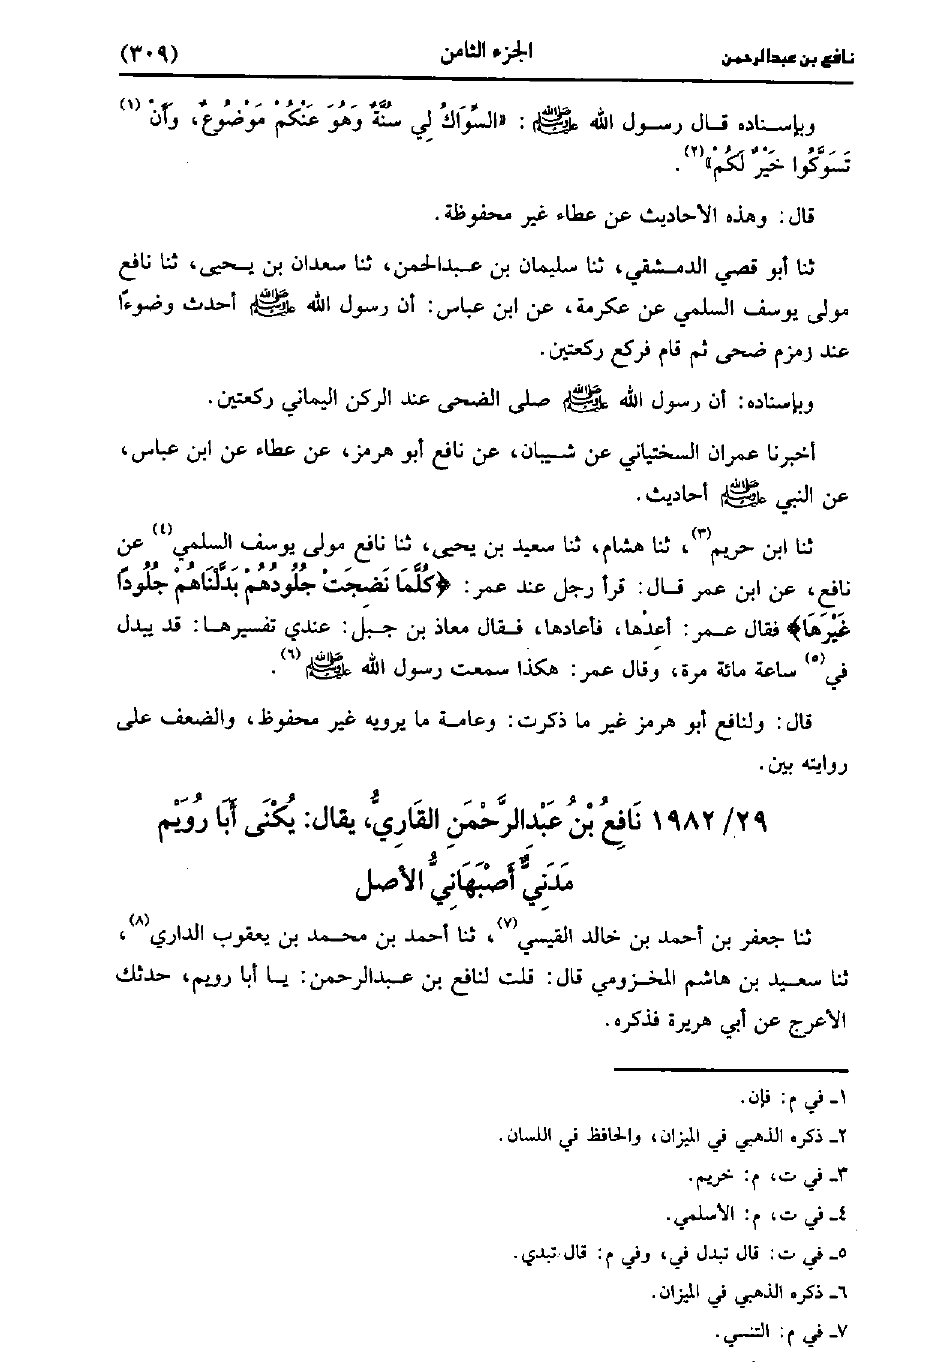 نافع بن عبدالرحمن الجزء الثامن (٣٠٩)
وبإسناده قال رسول الله ﷺ : «السِّوَاكُ لِي سُنَّةٌ وَهُوَ عَنْكُم مَوْضُوعٌ، وأَنْ (١)
تَسَوَّكُوا خَيْرٌ لَكُمْ»(٢).
قال: وهذه الأحاديث عن عطاء غير محفوظة.
ثنا أبو قصي الدمشقي، ثنا سليمان بن عبدالحمن، ثنا سعدان بن يحيى، ثنا نافع
مولى يوسف السلمي عن عكرمة، عن ابن عباس: أن رسول الله ﷺ أحدث وضوءًا
عند زمزم ضحى ثم قام فركع ركعتين.
وبإسناده: أن رسول الله ﷺ صلى الضحى عند الركن اليماني ركعتين.
أخبرنا عمران السختياني عن شيبان، عن نافع أبو هرمز، عن عطاء عن ابن عباس،
عن النبي ﷺ أحاديث.
ثنا ابن حريم(٣)، ثنا هشام، ثنا سعيد بن يحيى، ثنا نافع مولى يوسف السلمي(٤) عن
نافع، عن ابن عمر قال: قرأ رجل عند عمر: ﴿كُلَّمَا نَضِجَتْ جُلُودُهُمْ بَدَّلْنَاهُمْ جُلُودًا
غَيْرَهَا﴾ فقال عمر: أعدْها، فأعادها، فقال معاذ بن جبل: عندي تفسيرها: قد يبدل
في(٥) ساعة مائة مرة، وقال عمر: هكذا سمعت رسول الله ﷺ(٦).
قال: ولنافع أبو هرمز غير ما ذكرت: وعامة ما يرويه غير محفوظ، والضعف على
روايته بين.
٢٩/ ١٩٨٢ نَافِعُ بْنُ عَبْدِالرَّحْمَنِ القَارِيُّ، يقال: يُكْنَى أَبَا رُوَيْم
مَدَنِيٌّ أَصْبَهَانِيُّ الأصل
ثنا جعفر بن أحمد بن خالد القيسي(٧)، ثنا أحمد بن محمد بن يعقوب الداري(٨)،
ثنا سعيد بن هاشم المخزومي قال: قلت لنافع بن عبدالرحمن: يا أبا رويم، حدثك
الأعرج عن أبي هريرة فذكره.
١ـ في م: فإن.
٢ـ ذكره الذهبي في الميزان، والحافظ في اللسان.
٣ـ في ت، م: خريم.
٤ـ في ت، م: الأسلمي.
٥ـ في ت: قال تبدل في، وفي م: قال تبدي.
٦ـ ذكره الذهبي في الميزان.
٧ـ في م: التنسي.